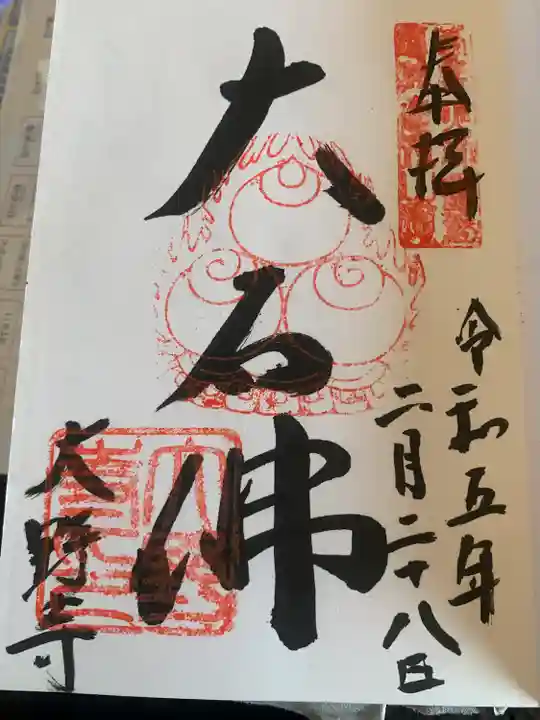 奉拝
令和五年
二月二十八日
大石佛
大勝寺